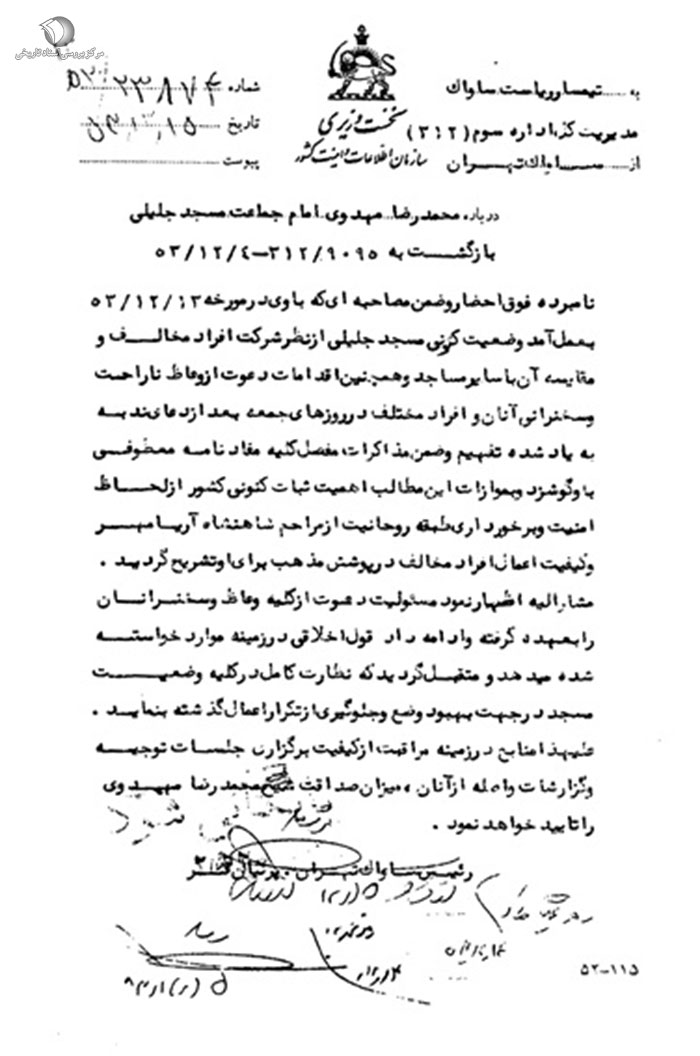 مرکز بررسی اسناد تاریخی
به تیمسار ریاست ساواک
مدیریت کل اداره سوم (۳۱۲)
از ساواک تهران
نخست وزیری
سازمان اطلاعات و امنیت کشور
شماره ۲۳۸۷۴
تاریخ
پیوست
درباره محمد رضا مهدوی امام جماعت مسجد جلیلی
بازگشت به ۳۱۲/۹۰۹۵-۵۳/۱۲/۴
نامبرده فوق احضار و ضمن مصاحبه ای که با وی در مورخه ۵۳/۱۲/۱۳
بعمل آمد وضعیت کنونی مسجد جلیلی از نظر شرکت افراد مخالف و
مقایسه آن با سایر مساجد و همچنین اقدامات دعوت از وعاظ ناراحت
و سخنرانی آنان و افراد مختلف در روزهای جمعه بعد از دعای ندبه
به یاد شده تفهیم و ضمن مذاکرات مفصل کلیه مفاد نامه معطوفی
باو گوشزد و بموازات این مطالب اهمیت ثبات کنونی کشور از لحاظ
امنیت و برخورداری طبقه روحانیت از مراحم شاهنشاه آریامهر
و کیفیت اعمال افراد مخالف در پوشش مذهب برای او تشریح گردید .
مشارالیه اظهار نمود مسئولیت دعوت از کلیه وعاظ و سخنرانان
را بعهده گرفته و ادامه داد قول اخلاقی در زمینه موارد خواسته
شده میدهد و متقبل گردید که نظارت کامل در کلیه وضعیت
مسجد در جهت بهبود وضع و جلوگیری از تکرار اعمال گذشته بنماید .
علیهذا منابع در زمینه مراقبت از کیفیت برگزاری جلسات توجیه
و گزارشات واصله از آنان ، میزان صداقت شیخ محمد رضا مهدوی
را تایید خواهد نمود .
رئیس ساواک تهران . پرنیان فر
۵۲-۱۱۵